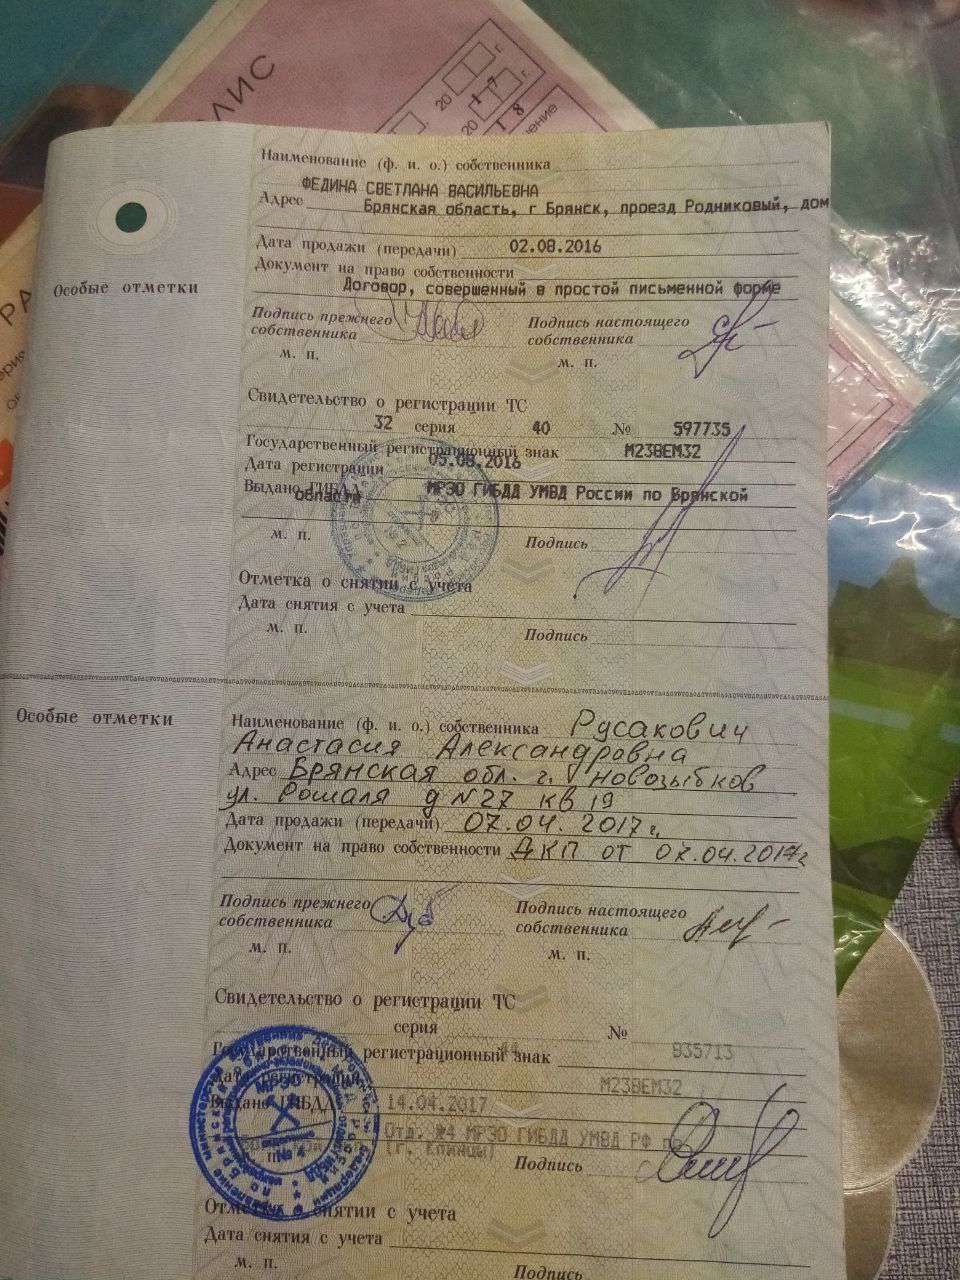 ЛИС
20 г.
20 17 г.
18
Наименование (ф. и. о.) собственника
ФЕДИНА СВЕТЛАНА ВАСИЛЬЕВНА
Адрес Брянская область, г Брянск, проезд Родниковый, дом
Дата продажи (передачи) 02.08.2016
Документ на право собственности
Договор, совершенный в простой письменной форме
Особые отметки
Подпись прежнего собственника
Подпись настоящего собственника
м. п. м. п.
Свидетельство о регистрации ТС
32 серия 40 № 597735
Государственный регистрационный знак М238ЕМ32
Дата регистрации 05.08.2016
Выдано ГИБДД МРЭО ГИБДД УМВД России по Брянской
области
м. п. Подпись
Отметка о снятии с учета
Дата снятия с учета
м. п. Подпись
Особые отметки
Наименование (ф. и. о.) собственника Русакович
Анастасия Александровна
Адрес Брянская обл. г. Новозыбков
ул. Рошаля д N27 кв 19
Дата продажи (передачи) 07.04.2017 г.
Документ на право собственности ДКП от 07.04.2017г
Подпись прежнего собственника
Подпись настоящего собственника
м. п. м. п.
Свидетельство о регистрации ТС
серия 44 № 935713
Государственный регистрационный знак
М238ЕМ32
Дата регистрации
Выдано ГИБДД 14.04.2017
Отд. №4 МРЭО ГИБДД УМВД РФ по
(г. Клинцы)
Подпись
Отметка о снятии с учета
Дата снятия с учета
м. п.
Подпись